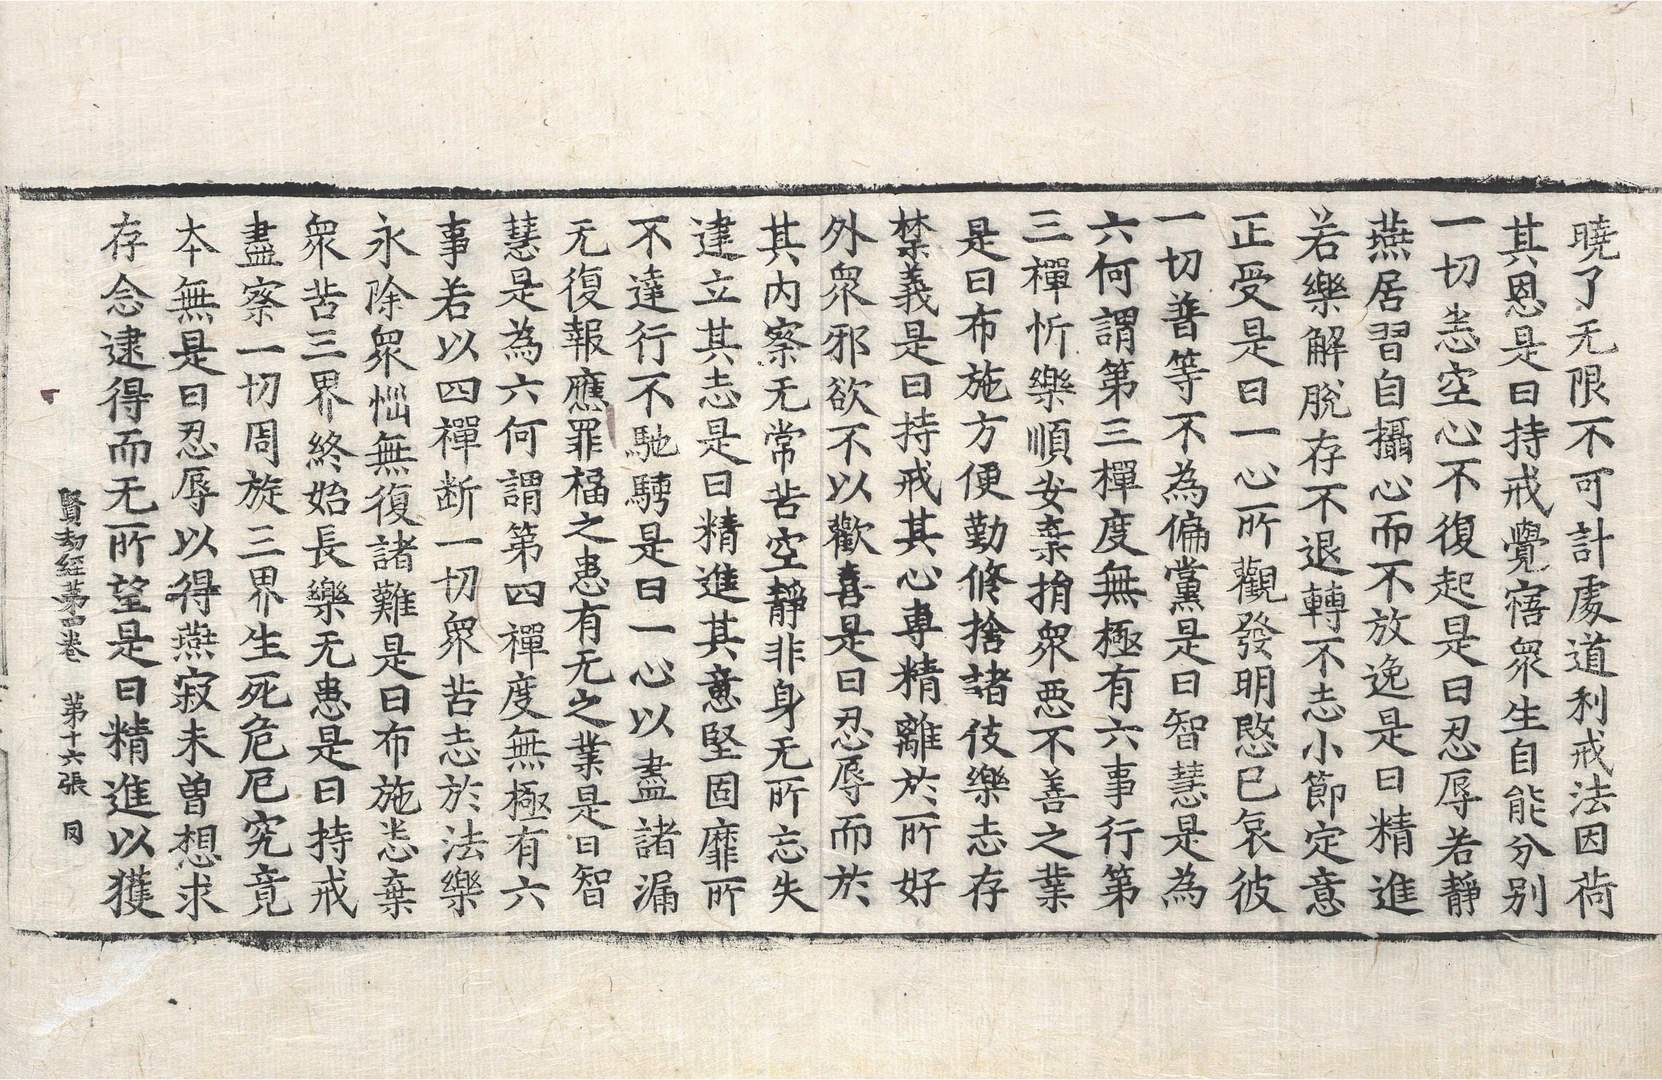 曉了无限不可計處道利戒法因尚
其恩是曰持戒覺寤眾生自能分别
一切恙空心不復起是曰忍辱若靜
燕居習自攝心而不放逸是曰精進
若樂解脫存不退轉不志小節定意
正受是曰一心所觀發明愍已哀彼
一切普等不為偏黨是曰智慧是為
六何謂第三禪度無極有六事行第
三禪忻樂順安棄捐眾惡不善之業
是曰布施方便勤修捨諸伎樂志存
禁義是曰持戒其心專精離於所好
外眾邪欲不以歡喜是曰忍辱而於
其內察无常苦空靜非身无所忘失
建立其志是曰精進其意堅固靡所
不達行不馳騁是曰一心以盡諸漏
无復報應罪福之患有无之業是曰智
慧是為六何謂第四禪度無極有六
事若以四禪断一切眾苦志於法樂
永除眾惱無復諸難是曰布施恙棄
眾苦三界終始長樂无患是曰持戒
盡察一切周旋三界生死危厄究竟
本無是曰忍辱以得燕寂未曾想求
存念逮得而无所望是曰精進以獲
賢劫經第四卷 第十六張 同